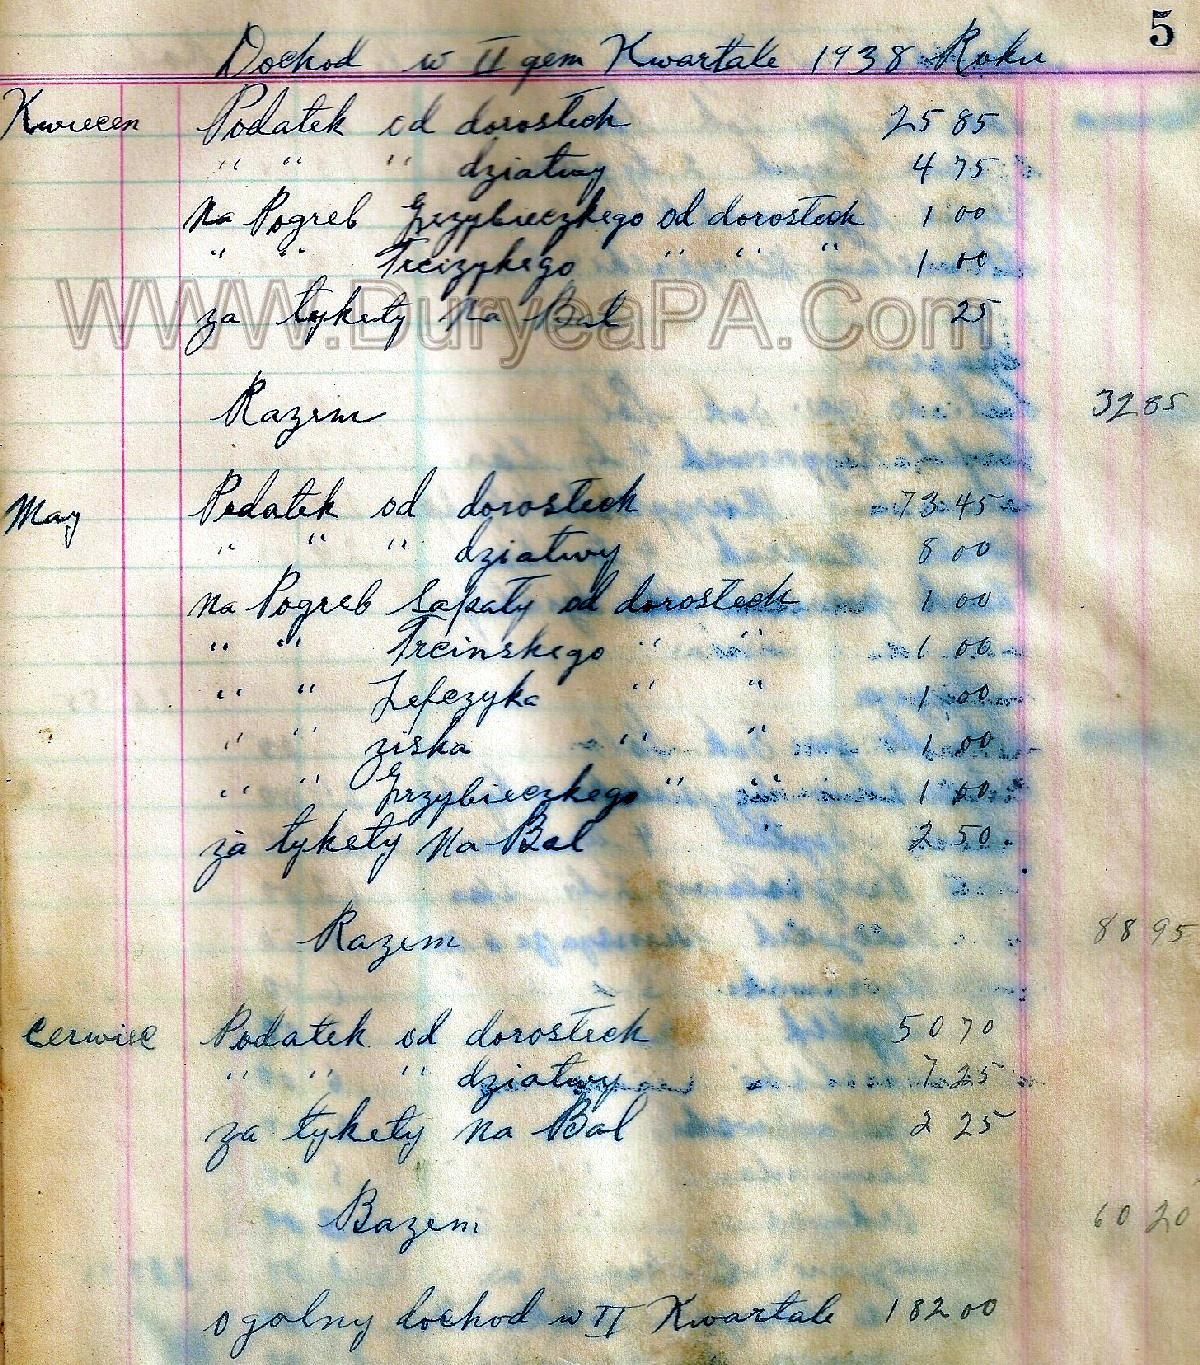 5
Dochod w II gem Kwartale 1938 Roku
Kwiecen Podatek od dorostech 25 85
" " " dziatwy 4 75
na Pogreb Grzybieczkego od dorostech 1 00
" " Trcizykego " " " 1 00
za tykety na Bal 25
WWW.DuryeaPA.Com
Razem 32 85
May Podatek od dorostech 73 45
" " " dziatwy 8 00
na Pogreb Sapaty od dorostech 1 00
" " Trcinskego " " 1 00
" " Lefczyka " " 1 00
" " ziska " " 1 00
" " Grzybieczkego " " 1 00
za tykety na Bal 2 50
Razem 88 95
Cerwiec Podatek od dorostech 50 70
" " " dziatwy 7 25
za tykety na Bal 2 25
Razem 60 20
ogolny dochod w II Kwartale 182 00